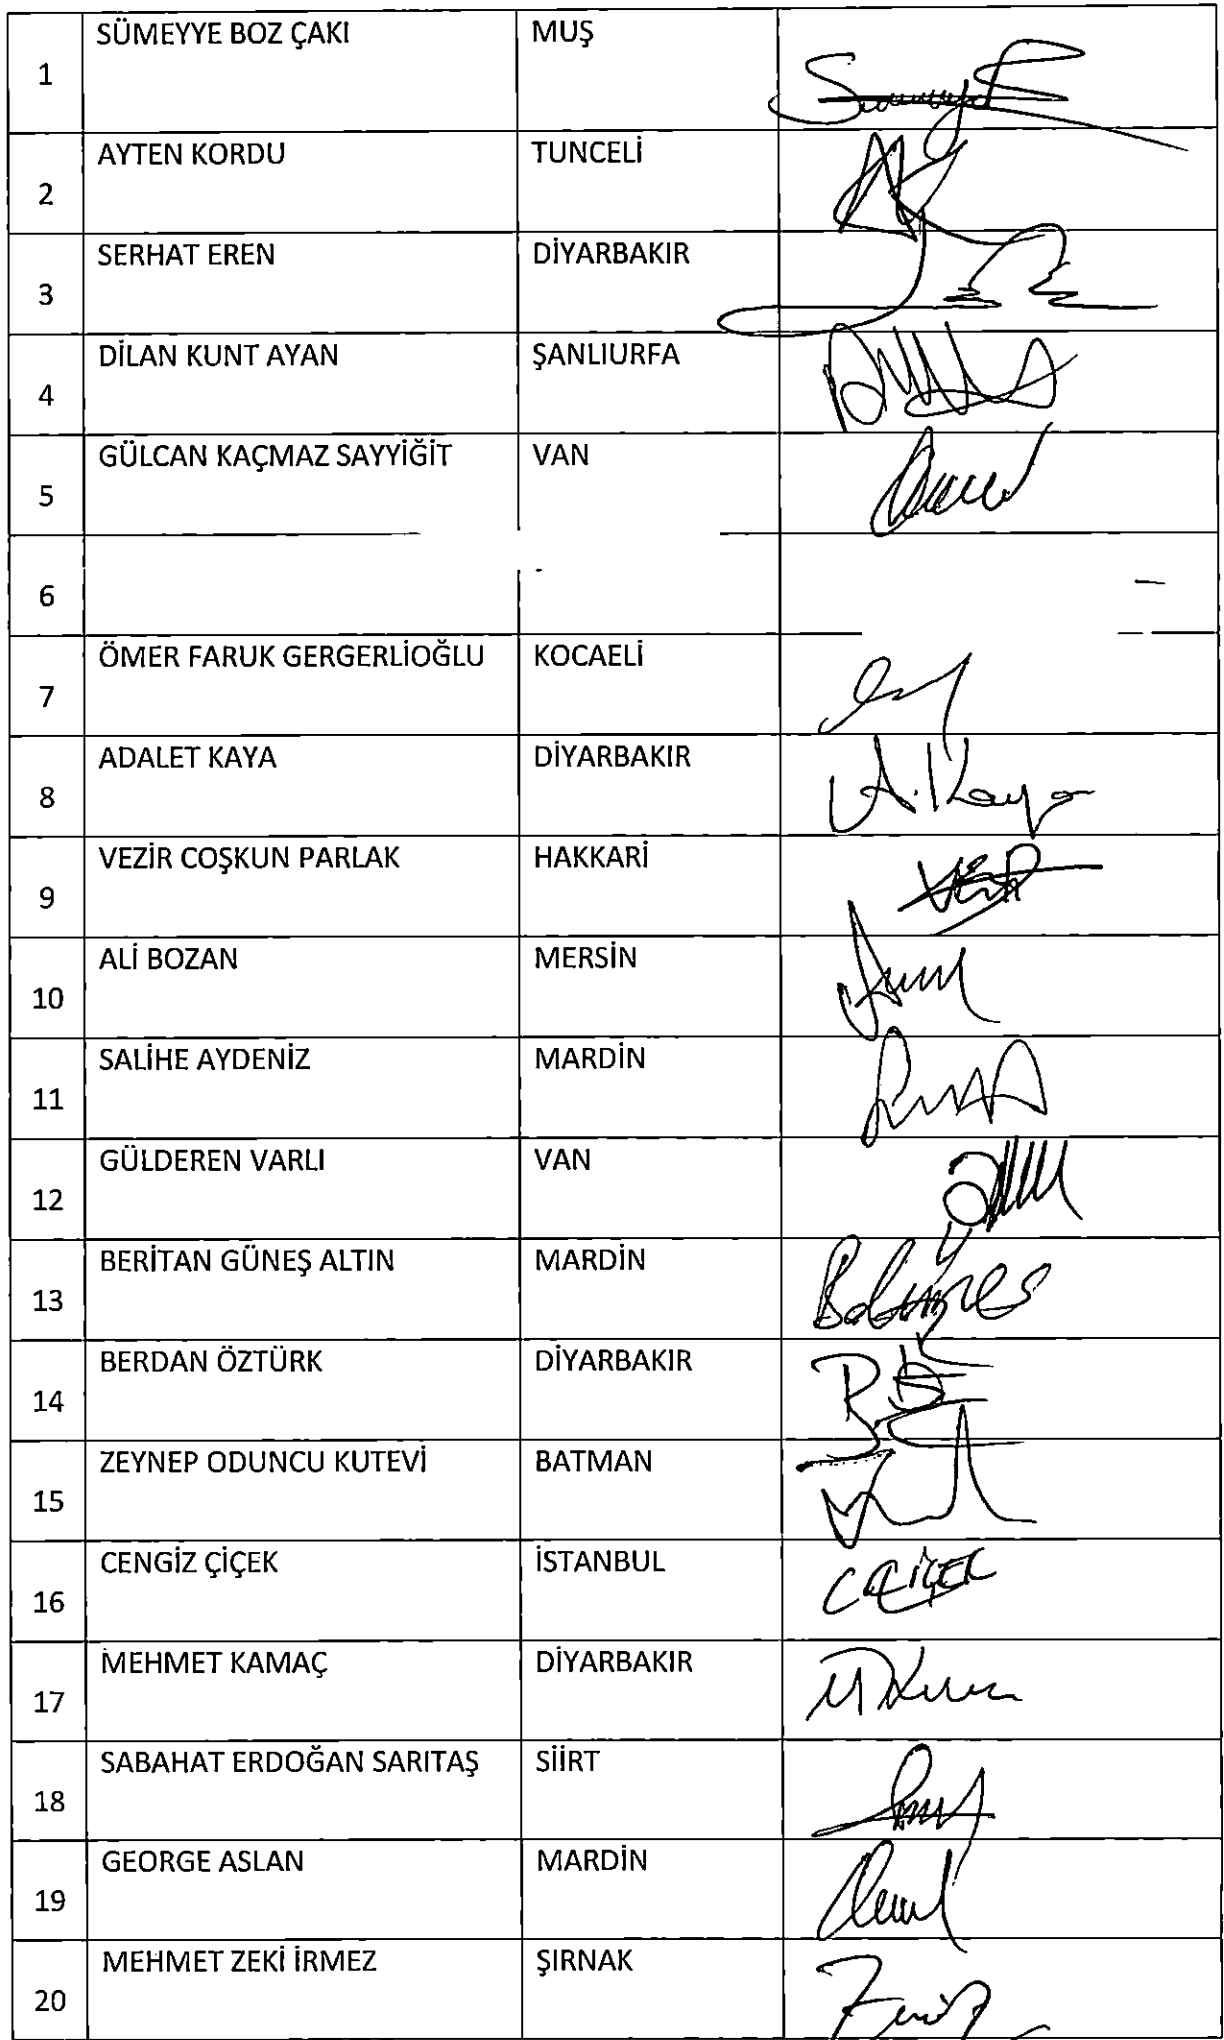 1 SÜMEYYE BOZ ÇAKI MUŞ
2 AYTEN KORDU TUNCELİ
3 SERHAT EREN DİYARBAKIR
4 DİLAN KUNT AYAN ŞANLIURFA
5 GÜLCAN KAÇMAZ SAYYİĞİT VAN
6
7 ÖMER FARUK GERGERLİOĞLU KOCAELİ
8 ADALET KAYA DİYARBAKIR A. Kaya
9 VEZİR COŞKUN PARLAK HAKKARİ
10 ALİ BOZAN MERSİN
11 SALİHE AYDENİZ MARDİN
12 GÜLDEREN VARLI VAN
13 BERİTAN GÜNEŞ ALTIN MARDİN
14 BERDAN ÖZTÜRK DİYARBAKIR
15 ZEYNEP ODUNCU KUTEVİ BATMAN
16 CENGİZ ÇİÇEK İSTANBUL
17 MEHMET KAMAÇ DİYARBAKIR
18 SABAHAT ERDOĞAN SARITAŞ SİİRT
19 GEORGE ASLAN MARDİN
20 MEHMET ZEKİ İRMEZ ŞIRNAK